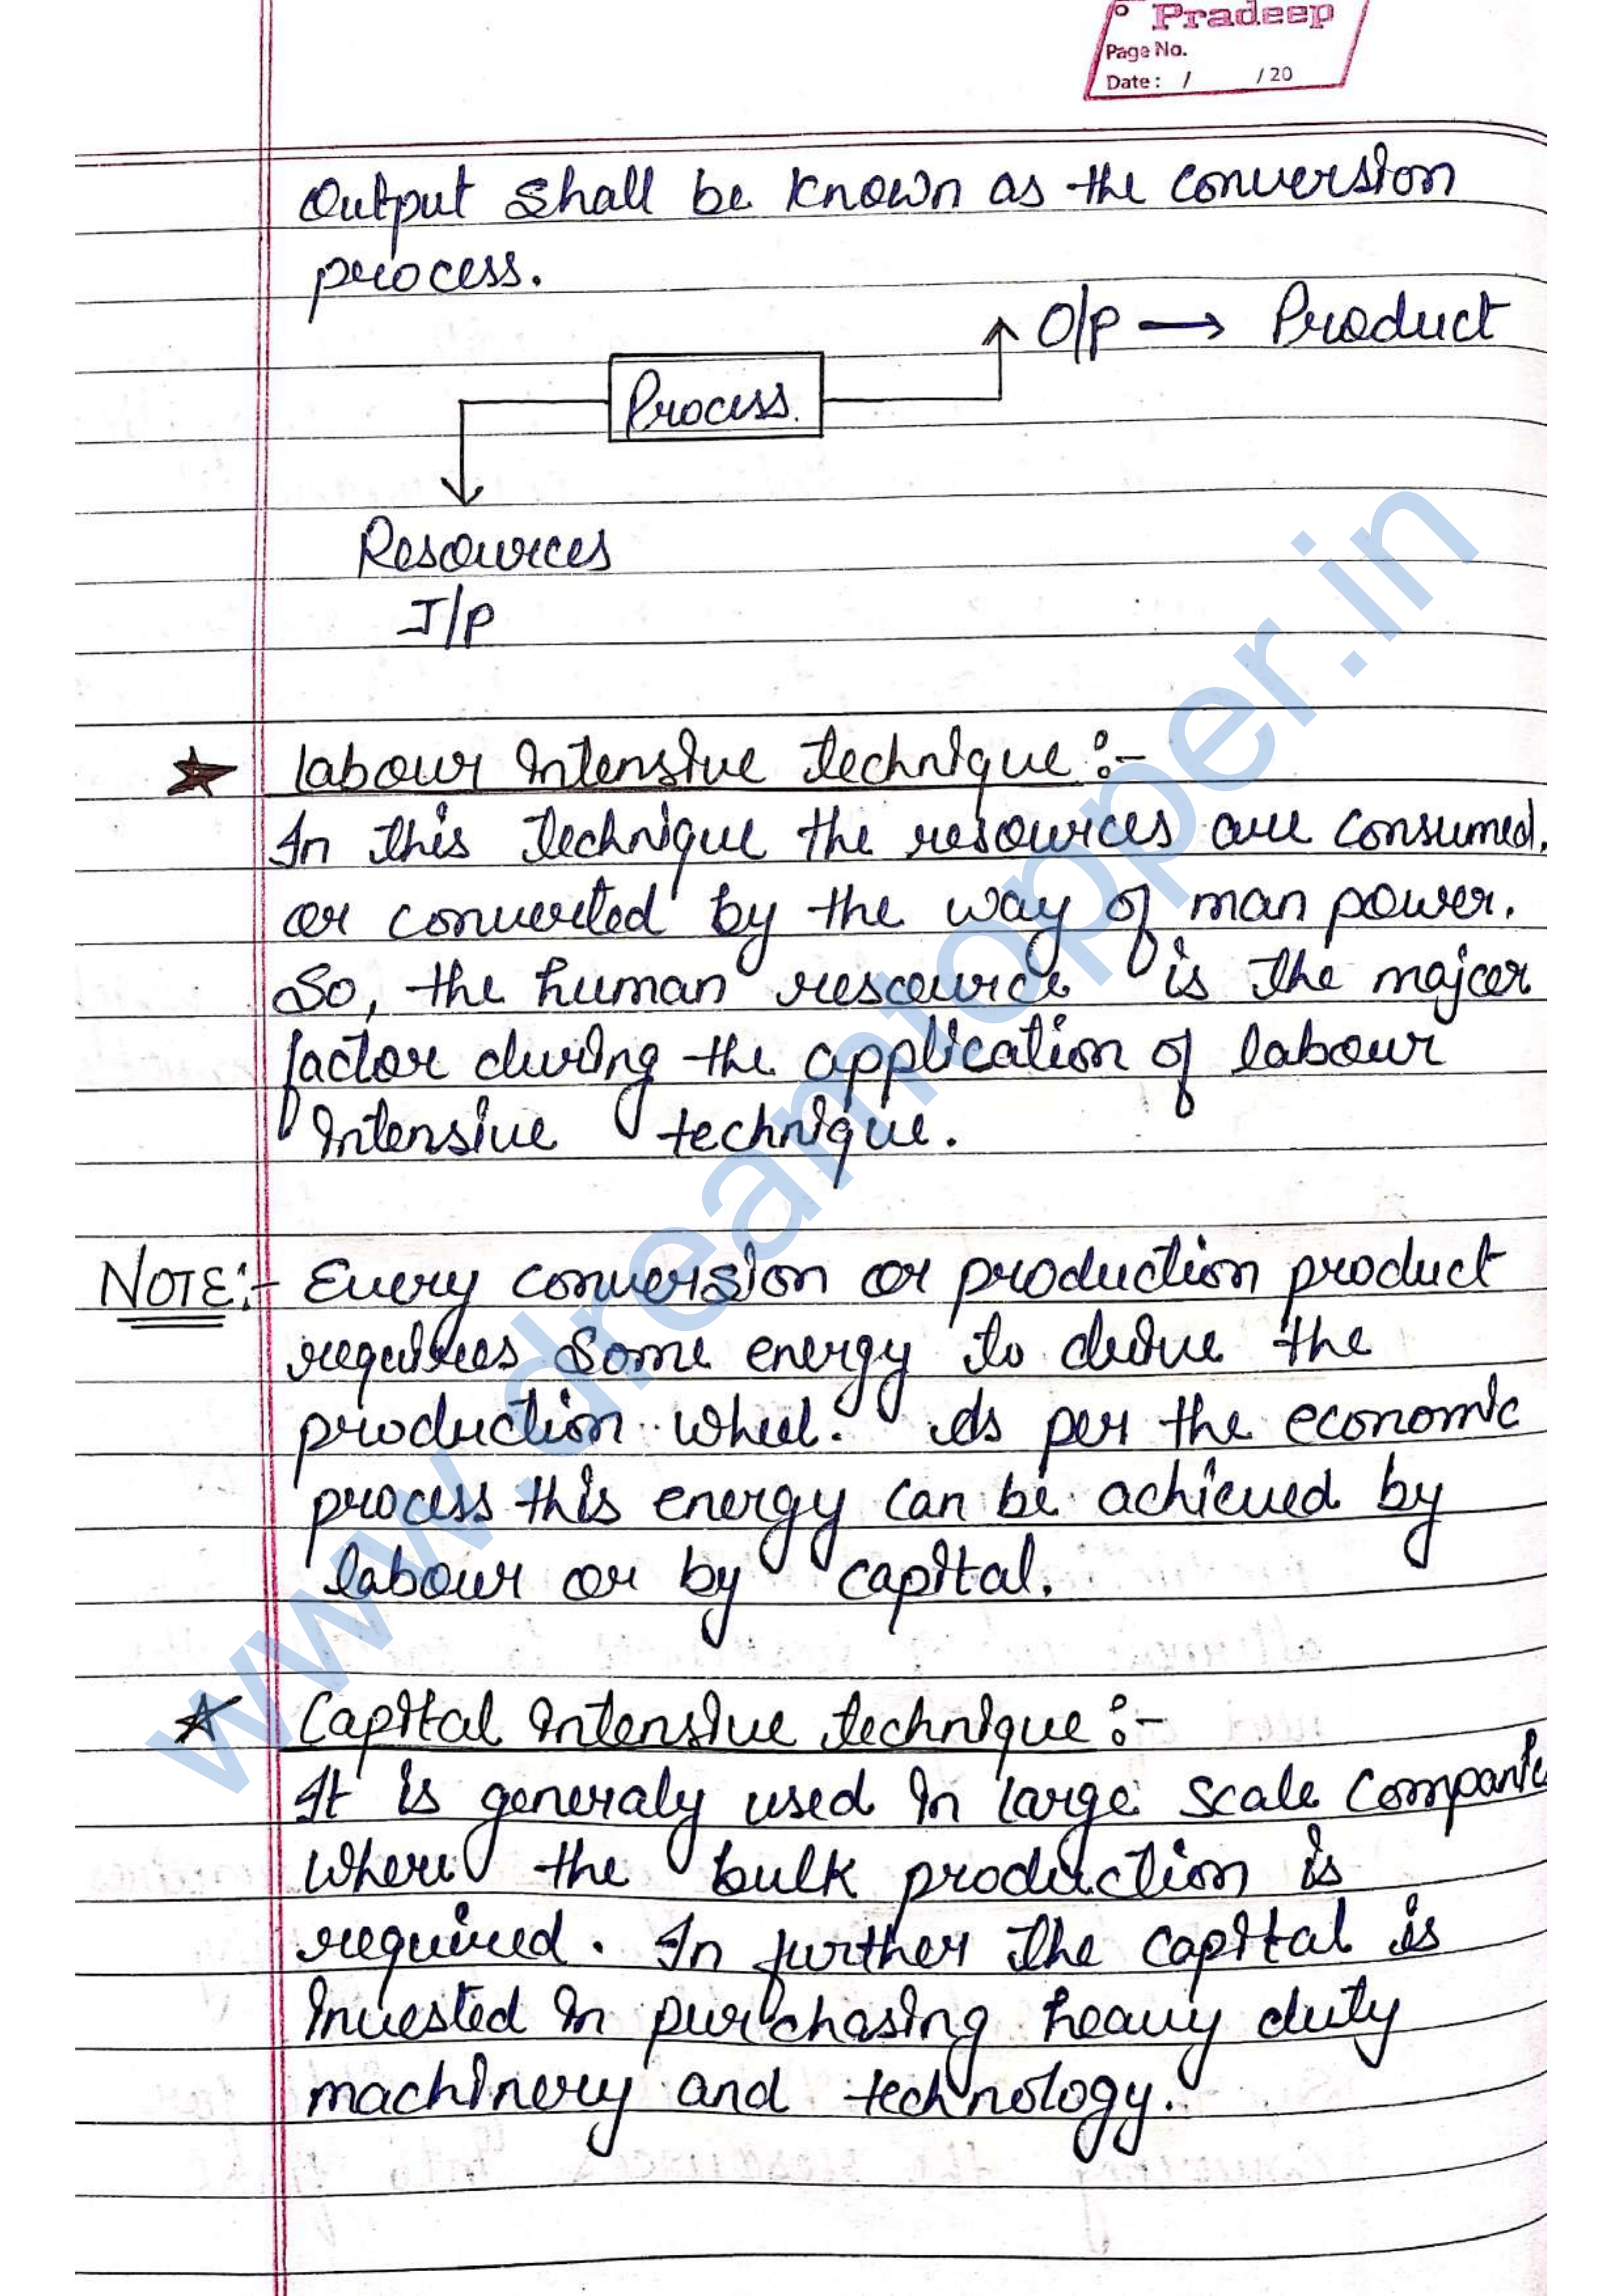 Pradeep
Page No.
Date : / / 20
Output shall be known as the conversion
process.
O/P → Product
Process.
Resources
I/P
★ labour intensive technique :-
In this technique the resources are consumed.
or converted by the way of man power.
So, the human rescource is the majcor
factor during the application of labour
intensive technique.
NOTE:- Every conversion or production product
requires some energy to drive the
production wheel. As per the economic
process this energy can be achieved by
labour or by capital.
★ Capital intensive technique :-
It is generaly used in large scale Companie
where the bulk production is
required. In further the capital is
invested in purchasing heavy duty
machinery and technology.
www.dreamtopper.in